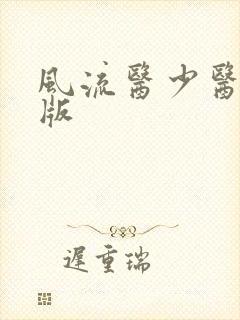 風流醫少醫
版
遲重瑞